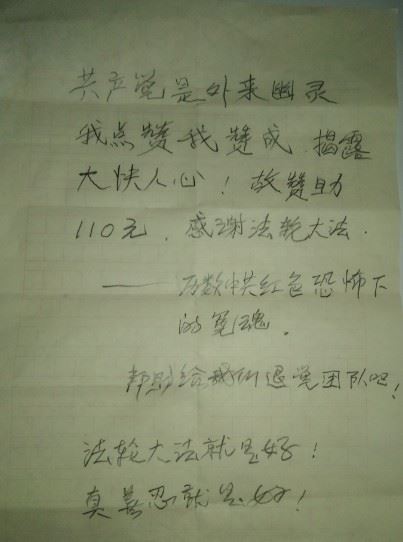 共产党是外来幽灵
我点赞我赞成,揭露
大快人心!故赞助
110元,感谢法轮大法.
——历数中共红色恐怖下
的冤魂.
帮助给我们退党团队吧!
法轮大法就是好!
真善忍就是好!